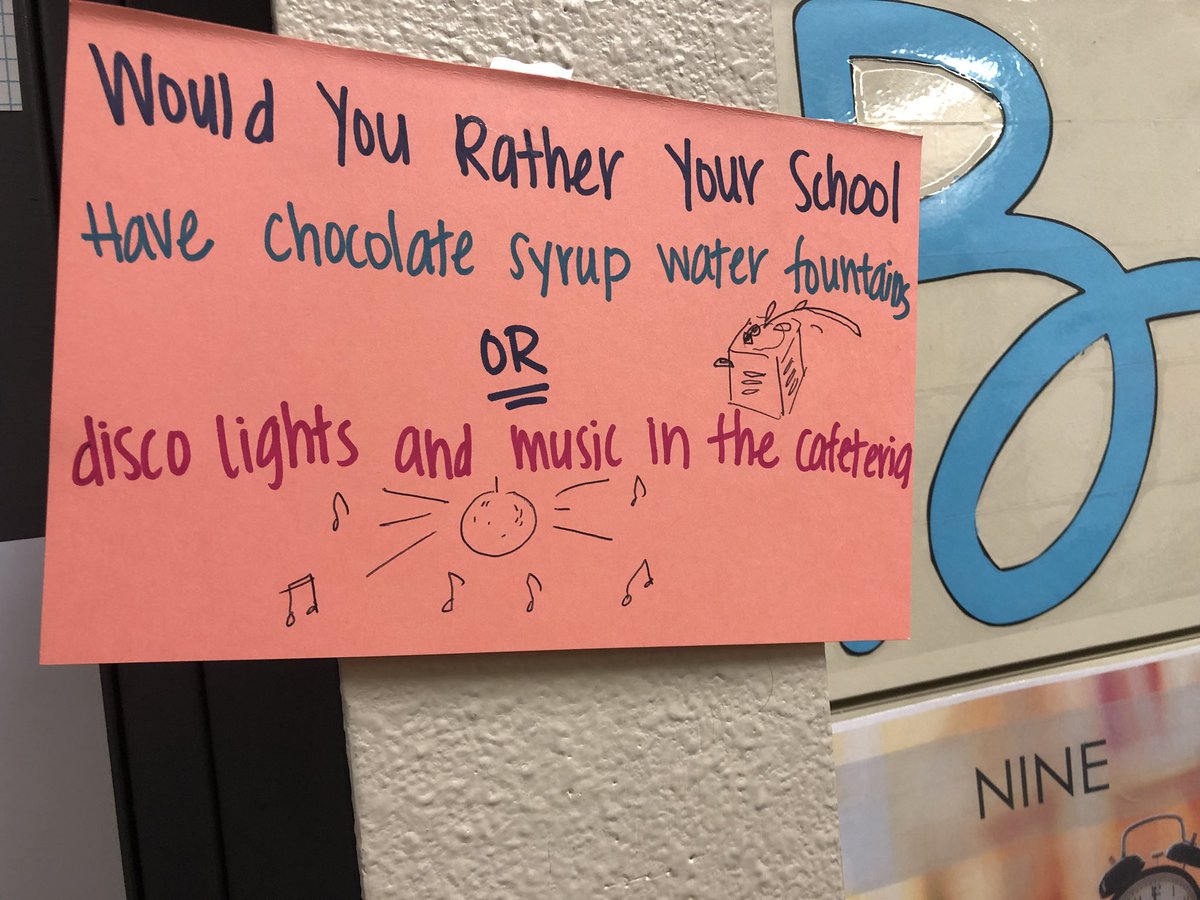 Would You Rather Your School
Have chocolate syrup water fountains
OR
disco lights and music in the cafeteria
NINE